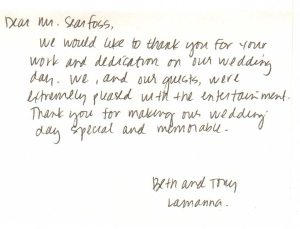 Dear Mr. Searfoss,
We would like to thank you for your
work and dedication on our wedding
day. We, and our guests, were
extremely pleased with the entertainment.
Thank you for making our wedding
day special and memorable.
Beth and Tony
Lamanna.